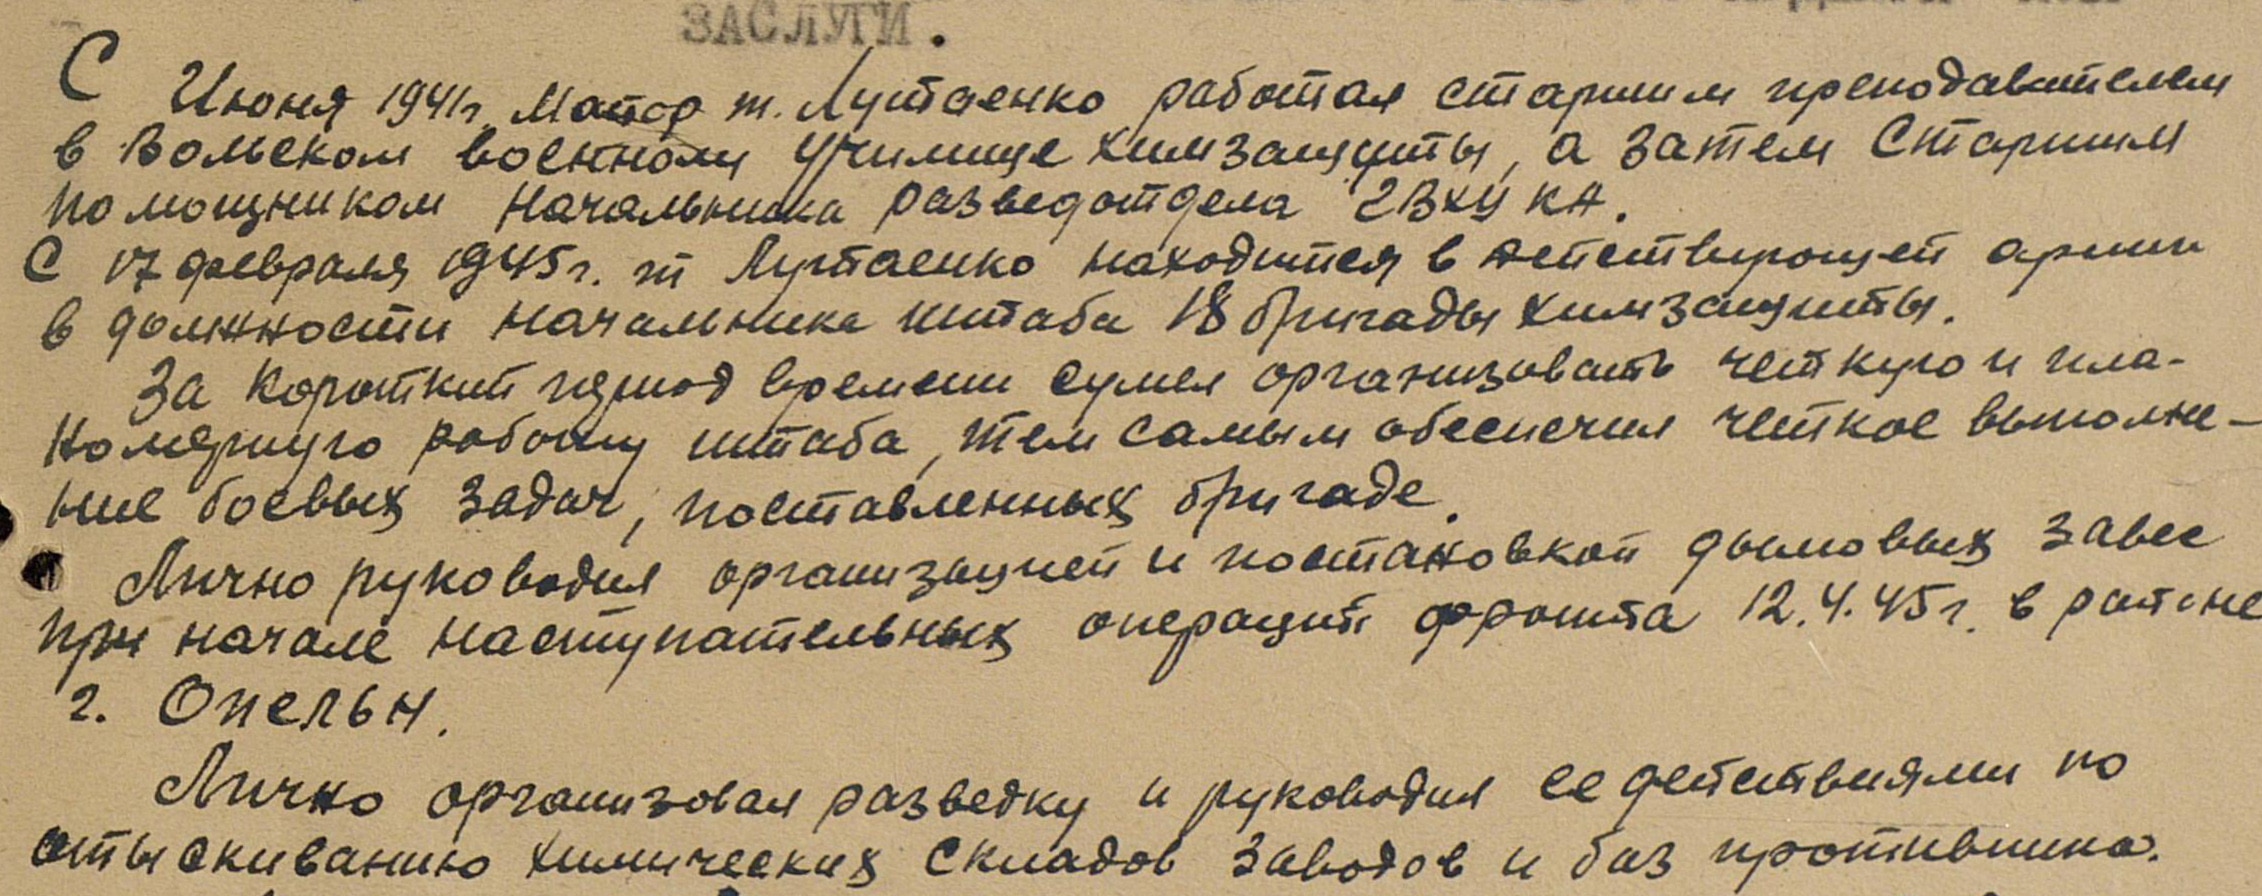 ЗАСЛУГИ.
С Июня 1941г. Майор т. Лутаенко работал старшим преподавателем
в Вольском военном училище химзащиты, а затем Старшим
помощником Начальника разведотдела ГВХУ КА.
С 17 февраля 1945г. т Лутаенко находится в действующей армии
в должности начальника штаба 18 бригады химзащиты.
За короткий период времени сумел организовать четкую и пла-
номерную работу штаба, тем самым обеспечил четкое выполне-
ние боевых задач, поставленных бригаде.
Лично руководил организацией и постановкой дымовых завес
при начале наступательных операций фронта 12.4.45г. в районе
г. Опельн.
Лично организовал разведку и руководил ее действиями по
отыскиванию химических складов заводов и баз противника.